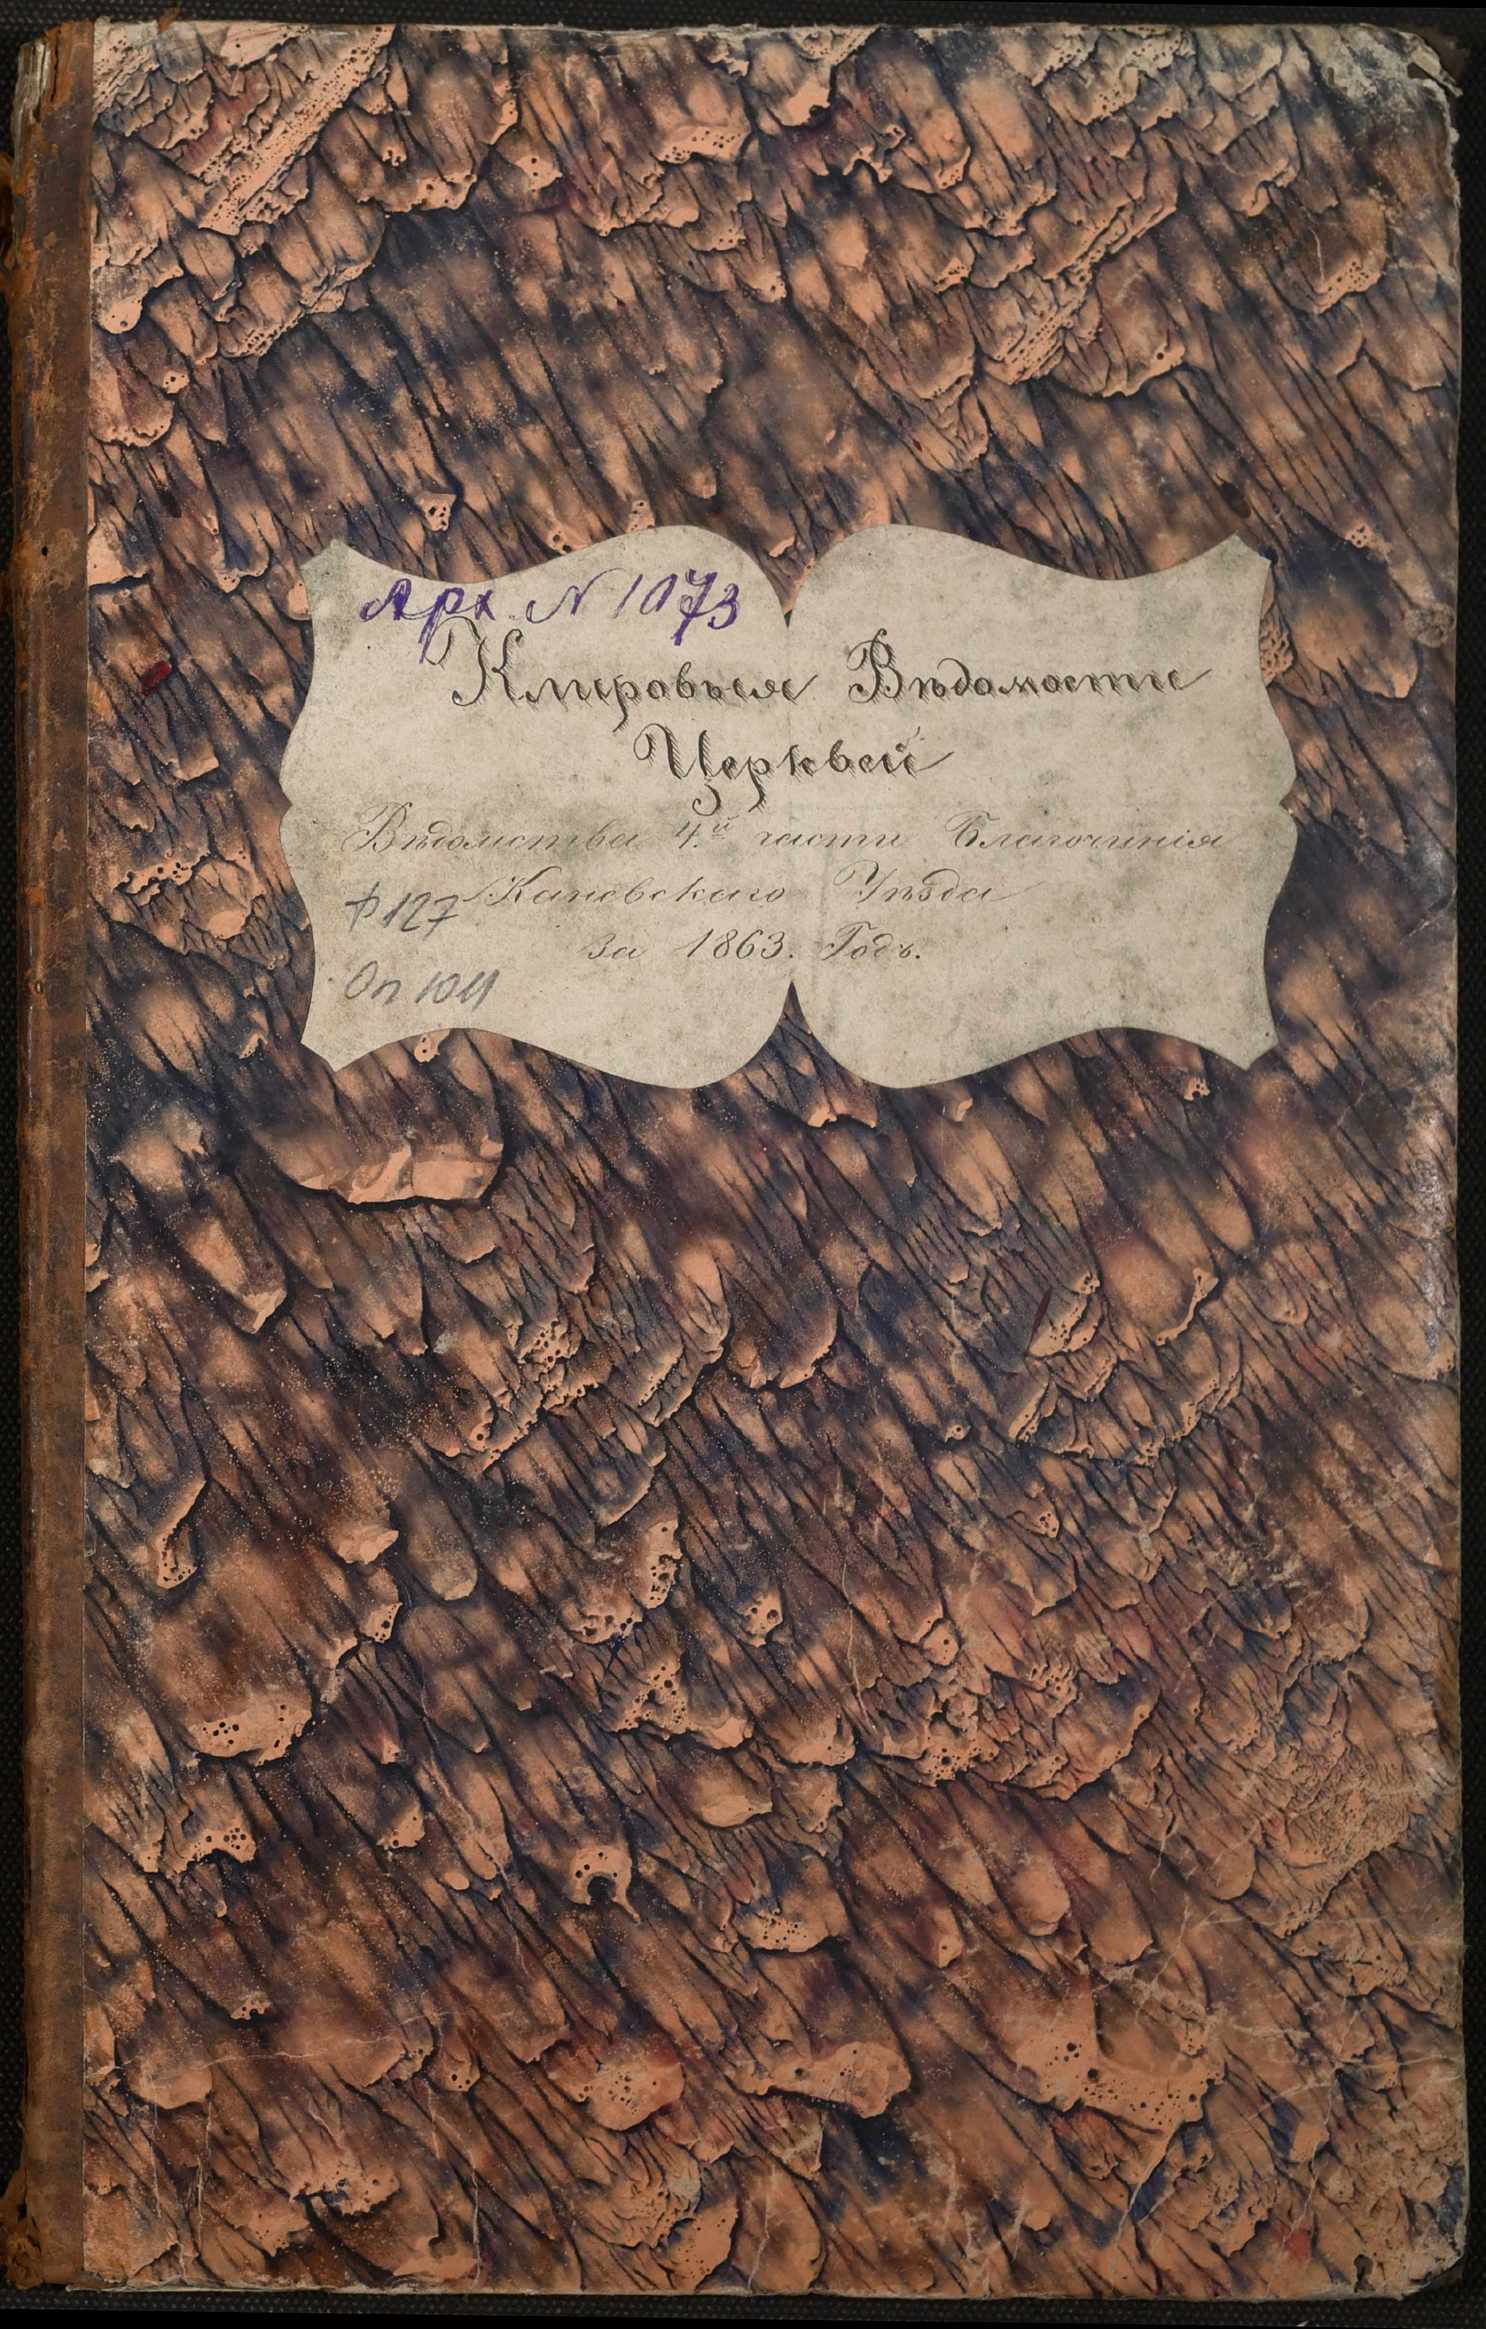 Арх. N 1073
Клировыя Вѣдомости
Церквей
Вѣдомства 4.й части Благочинія
Ф 127 Каневскаго Уѣзда
за 1863. Годъ.
Оп 1011